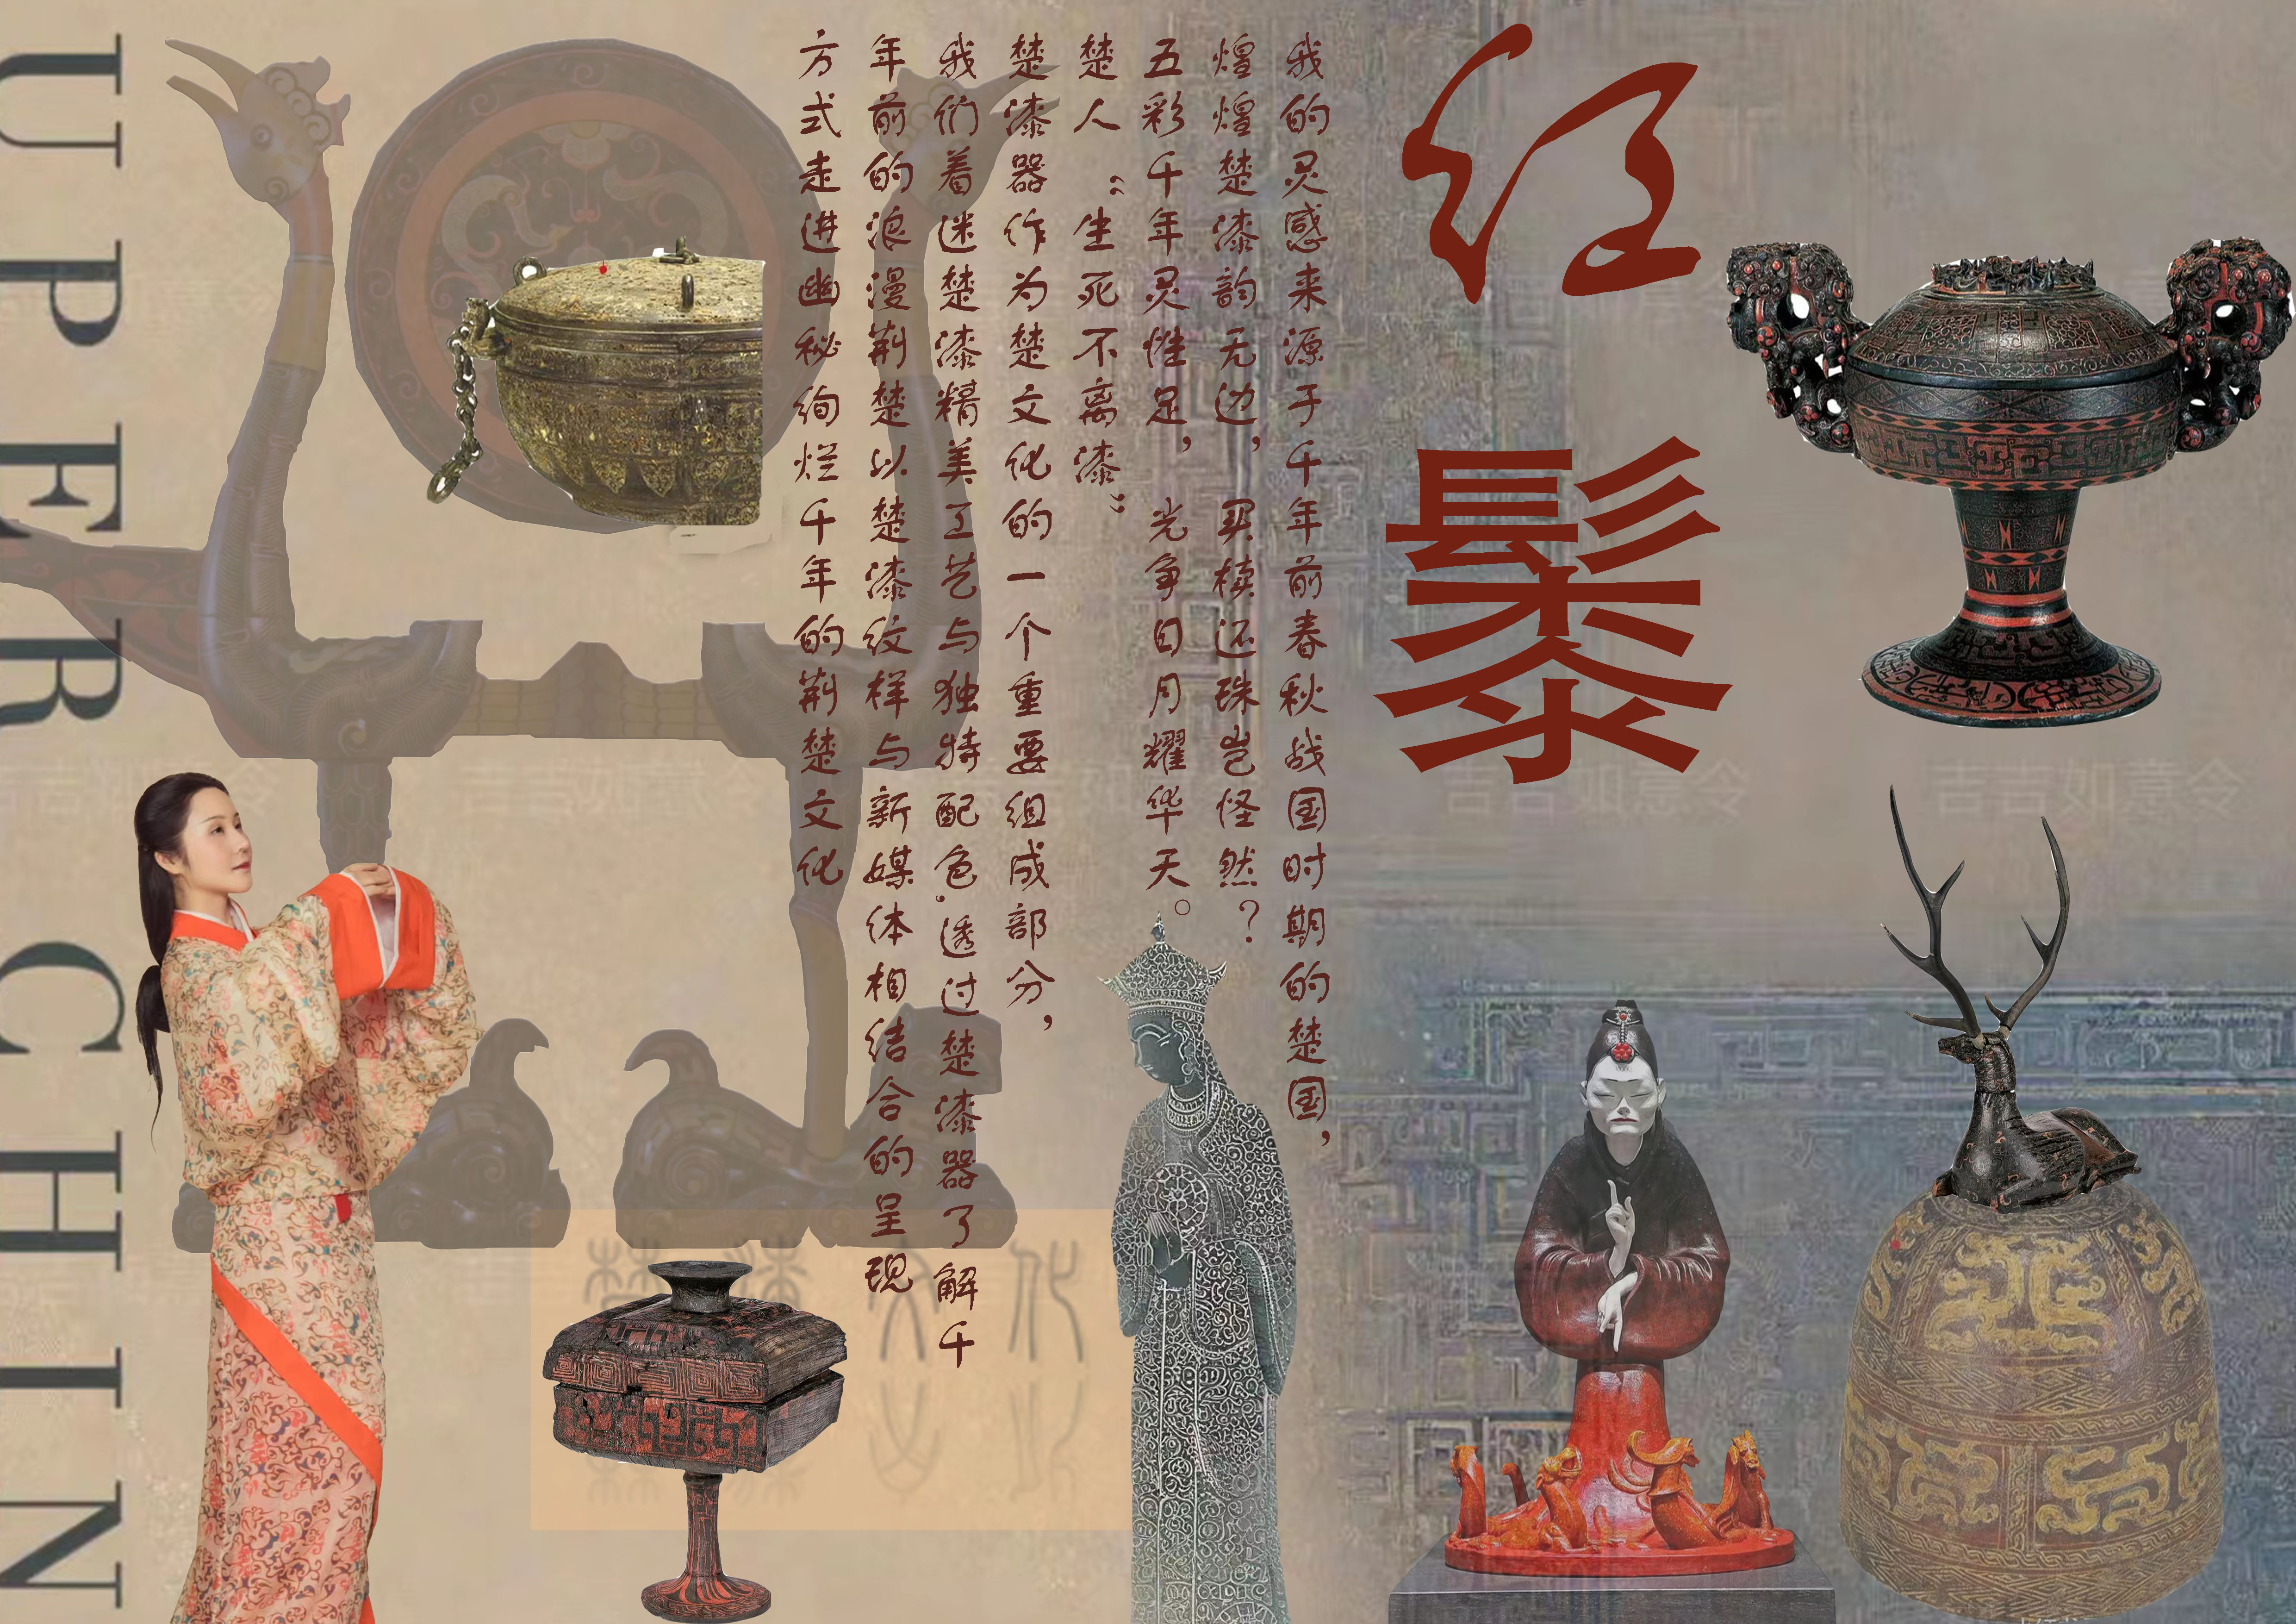 红䰍
我的灵感来源于千年前春秋战国时期的楚国，
煌煌楚漆韵无边，买椟还珠岂怪然？
五彩千年灵性足，光争日月耀华天。
楚人“生死不离漆”
楚漆器作为楚文化的一个重要组成部分，
我们着迷楚漆精美工艺与独特配色,透过楚漆器了解千
年前的浪漫荆楚以楚漆纹样与新媒体相结合的呈现
方式走进幽秘绚烂千年的荆楚文化
UPER CHIIN
楚漆文化
吉吉如意令
吉吉如意令